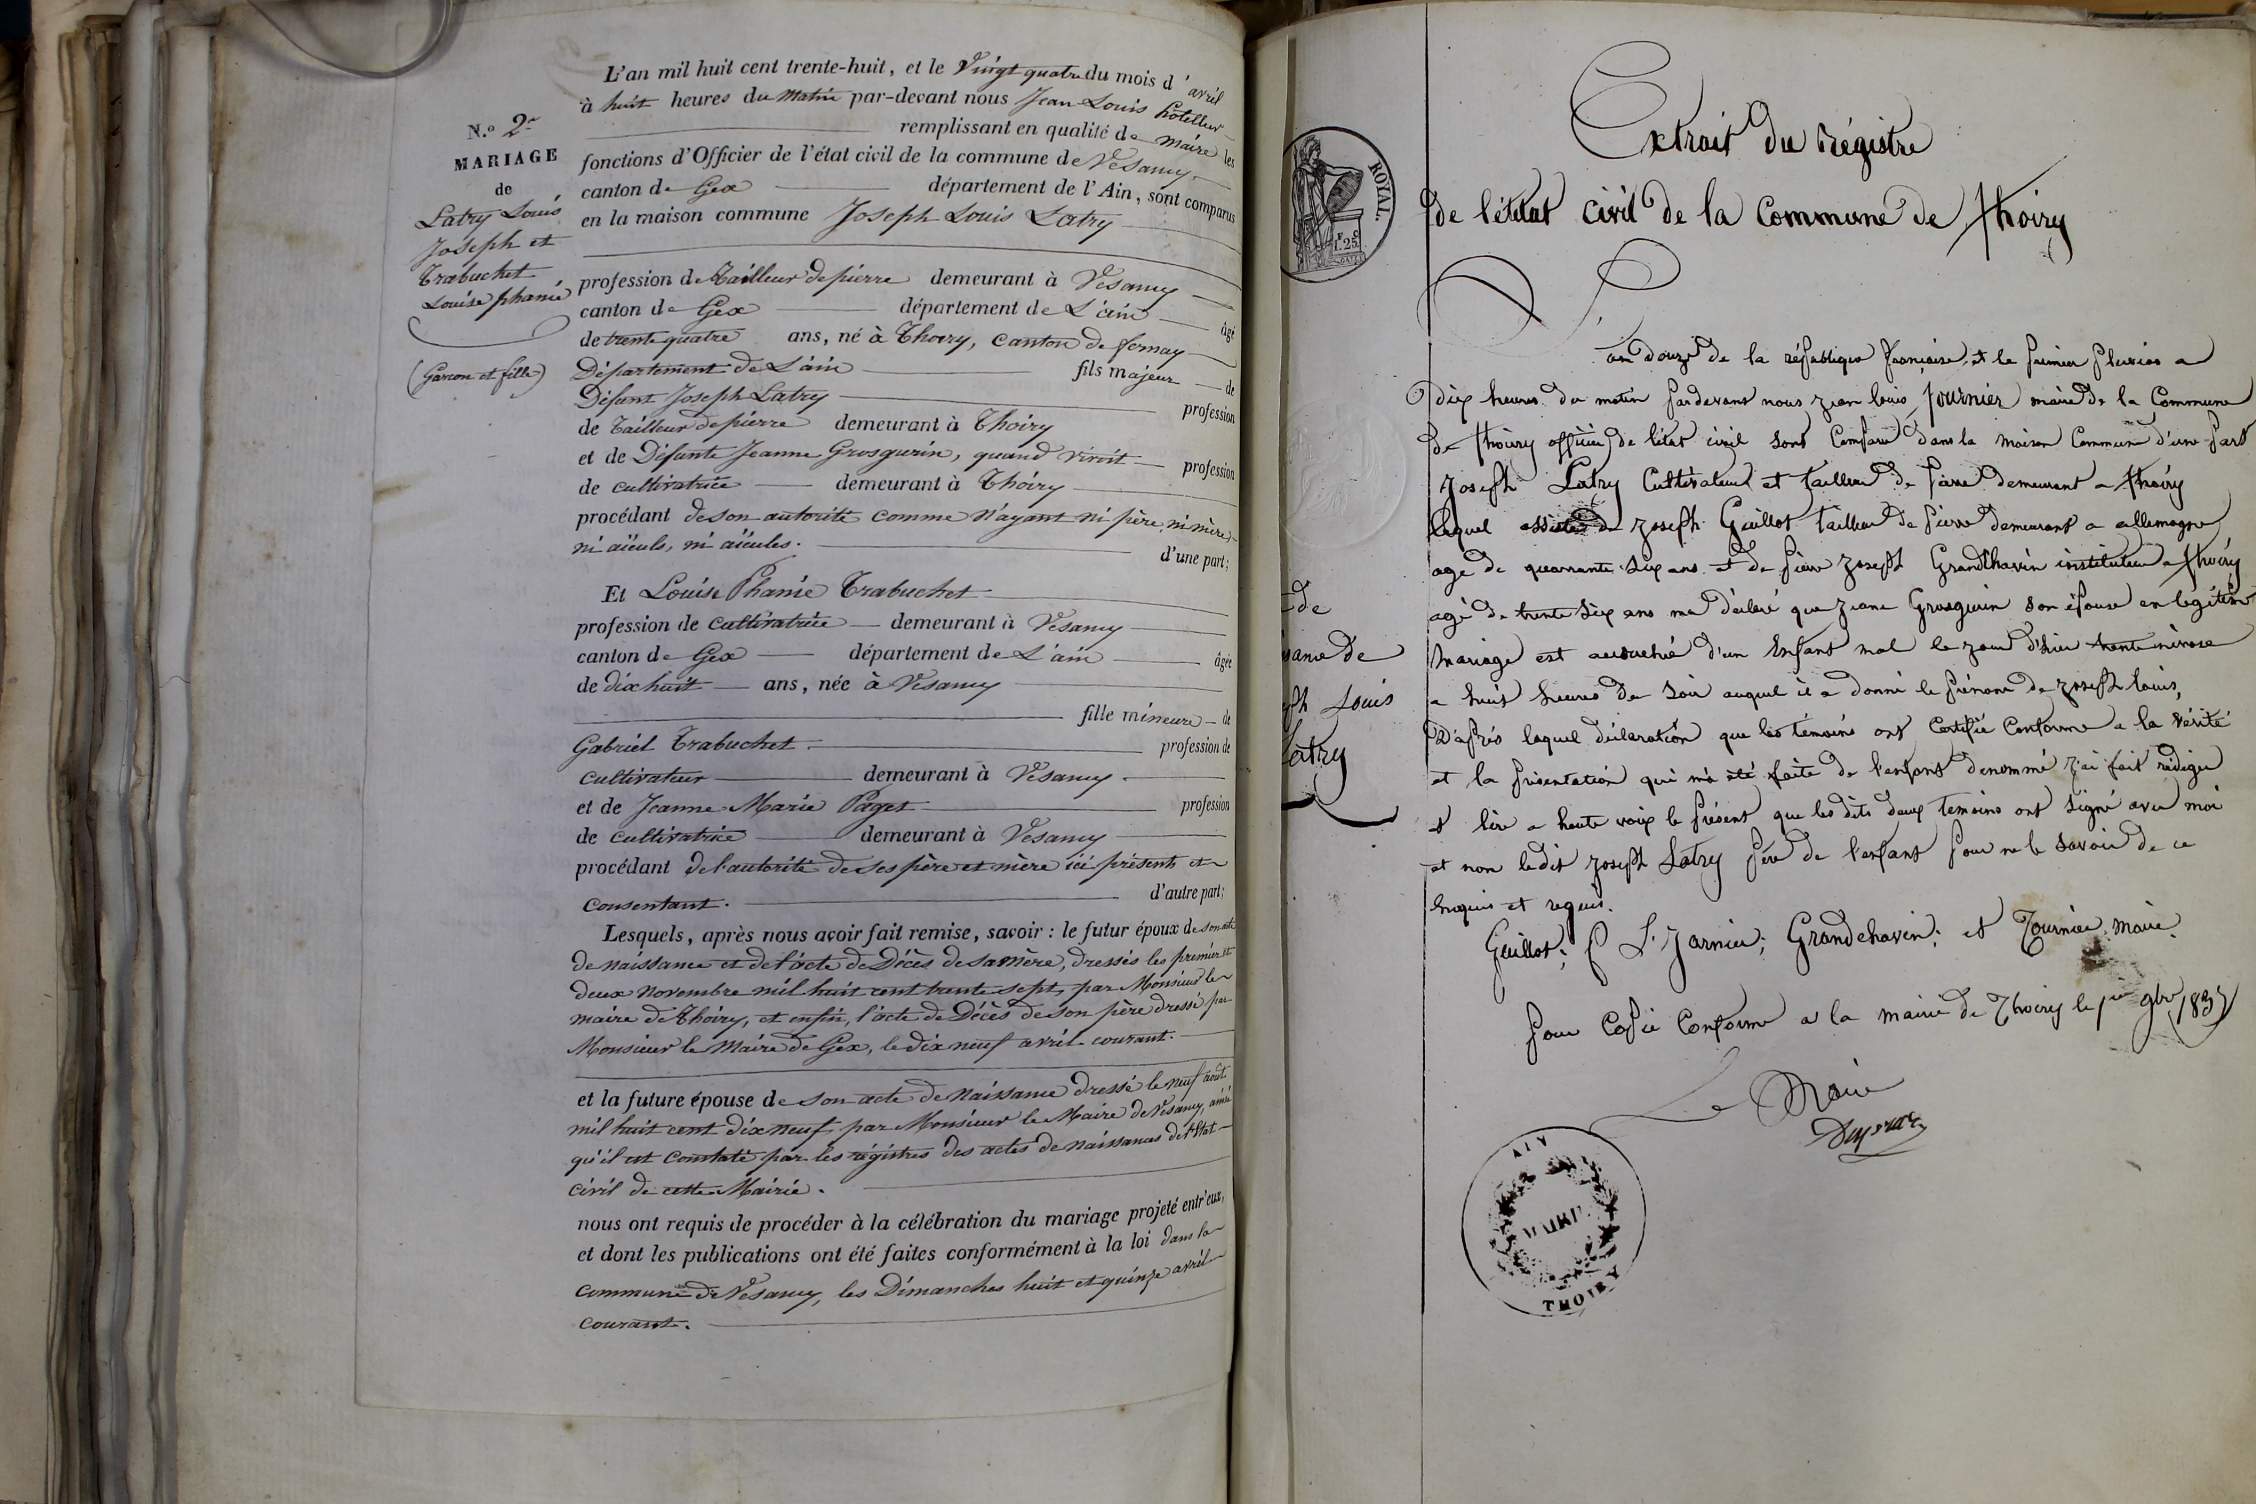 N.o 2e
MARIAGE
de
Latry Louis
Joseph et
Trabuchet
Louise phanie
(Garcon et fille)
L'an mil huit cent trente-huit, et le Vingt quatre du mois d'avril
à huit heures du matin par-devant nous Jean Louis hôtellier
remplissant en qualité de maire les
fonctions d'Officier de l'état civil de la commune de Vesancy
canton de Gex département de l'Ain, sont comparus
en la maison commune Joseph Louis Latry
profession de Tailleur de pierre demeurant à Vesancy
canton de Gex département de L'ain âgé
de trente quatre ans, né à Thoiry, Canton de fernay
Département de L'ain fils majeur de
Défunt Joseph Latry profession
de Tailleur de pierre demeurant à Thoiry
et de Défunte Jeanne Grosgurin, quand vivoit profession
de cultivatrice demeurant à Thoiry
procédant de son autorité comme n'ayant ni père, ni mère,
ni aïeuls, ni aïeules. d'une part;
Et Louise Phanie Trabuchet
profession de cultivatrice demeurant à Vesancy
canton de Gex département de L'ain âgée
de dix huit ans, née à Vesancy
fille mineure de
Gabriel Trabuchet profession de
cultivateur demeurant à Vesancy.
et de Jeanne Marie Paget profession
de cultivatrice demeurant à Vesancy
procédant de l'autorité de ses père et mère ici présents et
consentant. d'autre part;
Lesquels, après nous avoir fait remise, savoir : le futur époux de son acte
de naissance et de l'acte de Décès de sa mère, dressés les premier et
deux novembre mil huit cent trente sept, par Monsieur le
maire de Thoiry, et enfin, l'acte de Décès de son père dressé par
Monsieur le Maire de Gex, le dix neuf avril courant.
et la future épouse de son acte de naissance dressé le neuf août
mil huit cent dix neuf par Monsieur le Maire de Vesancy, ainsi
qu'il est constaté par les régistres des actes de naissances de l'Etat
civil de cette Mairie.
nous ont requis de procéder à la célébration du mariage projeté entr'eux,
et dont les publications ont été faites conformément à la loi dans la
commune de Vesancy, les Dimanches huit et quinze avril
courant.
ROYAL.
1.25
Extrait du régistre
de l'état civil de la Commune de Thoiry
L'
an douze de la république française et le premier pluvios a
dix heures du matin pardevant nous jean louis fournier maire de la Commune
de Thoiry officier de l'état civil sont Comparu dans la maison Commune d'une part
joseph Latry Cultivateur et tailleur de pierre demeurant a Thoiry
lequel assisté de joseph Guillot tailleur de pierre demeurant a allemogne
agé de quarrante six ans et de pierre joseph Grandchavin instituteur a Thoiry
agé de trente six ans ma déclaré que jeane Grosgurin son épouse en légitime
mariage est accouchée d'un enfant mal le jour d'hier trente nivose
a huit heures du soir auquel il a donné le prénom de joseph louis,
D'après laquel déclaration que les témoins ont Certifié Conforme a la vérité
et la présentation qui m'a été faite de l'enfant dénommé j'ai fait rédiger
et lire a haute voix le présent que les dits deux temoins ont signé avec moi
et non ledit joseph Latry père de l'enfant pour ne le savoir de ce
enquis et requis.
Guillot; Grandchavin; et Fournier maire.
pour Copie Conforme a la mairie de Thoiry le 1er 9bre 1837
Le Maire
de
sance de
ph Louis
Latry
AIN
MAIRIE
THOIRY